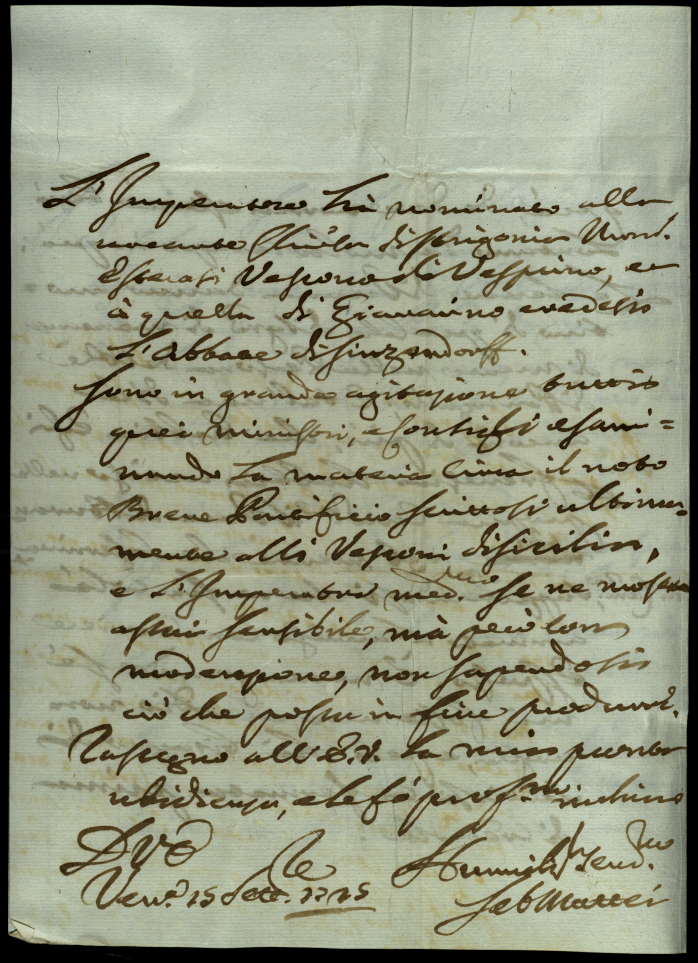 L'Imperatore hà nominato alla
vacante Chiesa di Strigonia Mons.r
Esterasi Vescovo di Vesprino, et
à quella di Giavarino credesi
L'Abbate di Sinzendorff.
Sono in grande agitazione tutti
quei ministri, e si esami=
nando la materia circa il noto
Breve Pontificio scrittosi ultima=
mente alli Vescovi di Sicilia,
e L'Imperatore med.mo se ne mostra
assai sensibile, mà però con
moderazione, non sapendosi
ciò che possa in fine produrre.
Rassegno all'E.V. la mia pronta
ubidienza, e le fò prof.mo inchino
D V E
Ven.a 15 Sett. 1725
Humiliss. Serv.
Seb Mattei